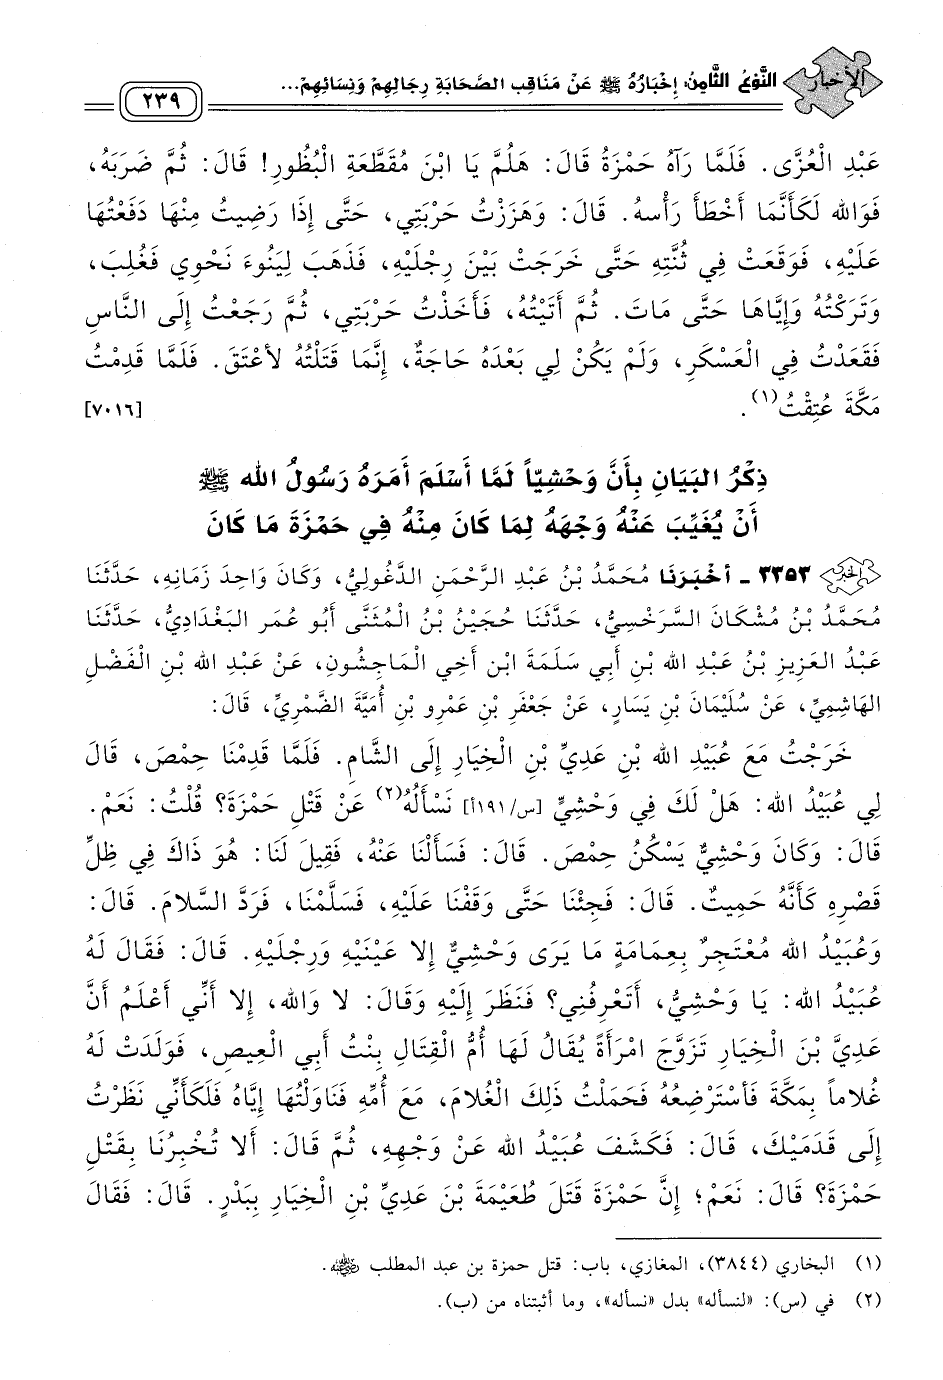 الأخبار
النَّوْعُ الثَّامِنُ: إِخْبَارُهُ ﷺ عَنْ مَنَاقِبِ الصَّحَابَةِ رِجَالِهِمْ وَنِسَائِهِمْ...
٢٣٩
عَبْدِ الْعُزَّى. فَلَمَّا رَآهُ حَمْزَةُ قَالَ: هَلُمَّ يَا ابْنَ مُقَطَّعَةِ الْبُظُورِ! قَالَ: ثُمَّ ضَرَبَهُ،
فَوَالله لَكَأَنَّمَا أَخْطَأَ رَأْسهُ. قَالَ: وَهَزَزْتُ حَرْبَتِي، حَتَّى إِذَا رَضِيتُ مِنْهَا دَفَعْتُهَا
عَلَيْهِ، فَوَقَعَتْ فِي ثُنَّتِهِ حَتَّى خَرَجَتْ بَيْنَ رِجْلَيْهِ، فَذَهَبَ لِيَنُوءَ نَحْوِي فَغُلِبَ،
وَتَرَكْتُهُ وَإِيَّاهَا حَتَّى مَاتَ. ثُمَّ أَتَيْتُهُ، فَأَخَذْتُ حَرْبَتِي، ثُمَّ رَجَعْتُ إِلَى النَّاسِ
فَقَعَدْتُ فِي الْعَسْكَرِ، وَلَمْ يَكُنْ لِي بَعْدَهُ حَاجَةٌ، إِنَّمَا قَتَلْتُهُ لأعْتَقَ. فَلَمَّا قَدِمْتُ
مَكَّةَ عُتِقْتُ(١). [٧٠١٦]
ذِكْرُ البَيَانِ بِأَنَّ وَحْشِيّاً لَمَّا أَسْلَمَ أَمَرَهُ رَسُولُ الله ﷺ
أَنْ يُغَيِّبَ عَنْهُ وَجْهَهُ لِمَا كَانَ مِنْهُ فِي حَمْزَةَ مَا كَانَ
٣٣٥٣ - أَخْبَرَنَا مُحَمَّدُ بْنُ عَبْدِ الرَّحْمَنِ الدَّغُولِيُّ، وَكَانَ وَاحِدَ زَمَانِهِ، حَدَّثَنَا
مُحَمَّدُ بْنُ مُشْكَانَ السَّرَخْسِيُّ، حَدَّثَنَا حُجَيْنُ بْنُ الْمُثَنَّى أَبُو عُمَر البَغْدَادِيُّ، حَدَّثَنَا
عَبْدُ العَزِيزِ بْنُ عَبْدِ الله بْنِ أَبِي سَلَمَةَ ابْنِ أَخِي الْمَاجِشُونِ، عَنْ عَبْدِ الله بْنِ الْفَضْلِ
الهَاشِمِيِّ، عَنْ سُلَيْمَانَ بْنِ يَسَارٍ، عَنْ جَعْفَرِ بْنِ عَمْرِو بْنِ أُمَيَّةَ الضَّمْرِيِّ، قَالَ:
خَرَجْتُ مَعَ عُبَيْدِ الله بْنِ عَدِيِّ بْنِ الْخِيَارِ إِلَى الشَّامِ. فَلَمَّا قَدِمْنَا حِمْصَ، قَالَ
لِي عُبَيْدُ الله: هَلْ لَكَ فِي وَحْشِيٍّ [س/١٩١أ] نَسْأَلُهُ(٢) عَنْ قَتْلِ حَمْزَةَ؟ قُلْتُ: نَعَمْ.
قَالَ: وَكَانَ وَحْشِيٌّ يَسْكُنُ حِمْصَ. قَالَ: فَسَأَلْنَا عَنْهُ، فَقِيلَ لَنَا: هُوَ ذَاكَ فِي ظِلِّ
قَصْرِهِ كَأَنَّهُ حَمِيتٌ. قَالَ: فَجِئْنَا حَتَّى وَقَفْنَا عَلَيْهِ، فَسَلَّمْنَا، فَرَدَّ السَّلامَ. قَالَ:
وَعُبَيْدُ الله مُعْتَجِرٌ بِعِمَامَةٍ مَا يَرَى وَحْشِيٌّ إِلا عَيْنَيْهِ وَرِجْلَيْهِ. قَالَ: فَقَالَ لَهُ
عُبَيْدُ الله: يَا وَحْشِيُّ، أَتَعْرِفُنِي؟ فَنَظَرَ إِلَيْهِ وَقَالَ: لا وَالله، إِلا أَنِّي أَعْلَمُ أَنَّ
عَدِيَّ بْنَ الْخِيَارِ تَزَوَّجَ امْرَأَةً يُقَالُ لَهَا أُمُّ الْقِتَالِ بِنْتُ أَبِي الْعِيصِ، فَوَلَدَتْ لَهُ
غُلاماً بِمَكَّةَ فَأَسْتَرْضِعُهُ فَحَمَلْتُ ذَلِكَ الْغُلامَ، مَعَ أُمِّهِ فَنَاوَلْتُهَا إِيَّاهُ فَلَكَأَنِّي نَظَرْتُ
إِلَى قَدَمَيْكَ، قَالَ: فَكَشَفَ عُبَيْدُ الله عَنْ وَجْهِهِ، ثُمَّ قَالَ: أَلا تُخْبِرُنَا بِقَتْلِ
حَمْزَةَ؟ قَالَ: نَعَمْ؛ إِنَّ حَمْزَةَ قَتَلَ طُعَيْمَةَ بْنَ عَدِيِّ بْنِ الْخِيَارِ بِبَدْرٍ. قَالَ: فَقَالَ
(١) البخاري (٣٨٤٤)، المغازي، باب: قتل حمزة بن عبد المطلب رضي الله عنه.
(٢) في (س): «لنسأله» بدل «نسأله»، وما أثبتناه من (ب).